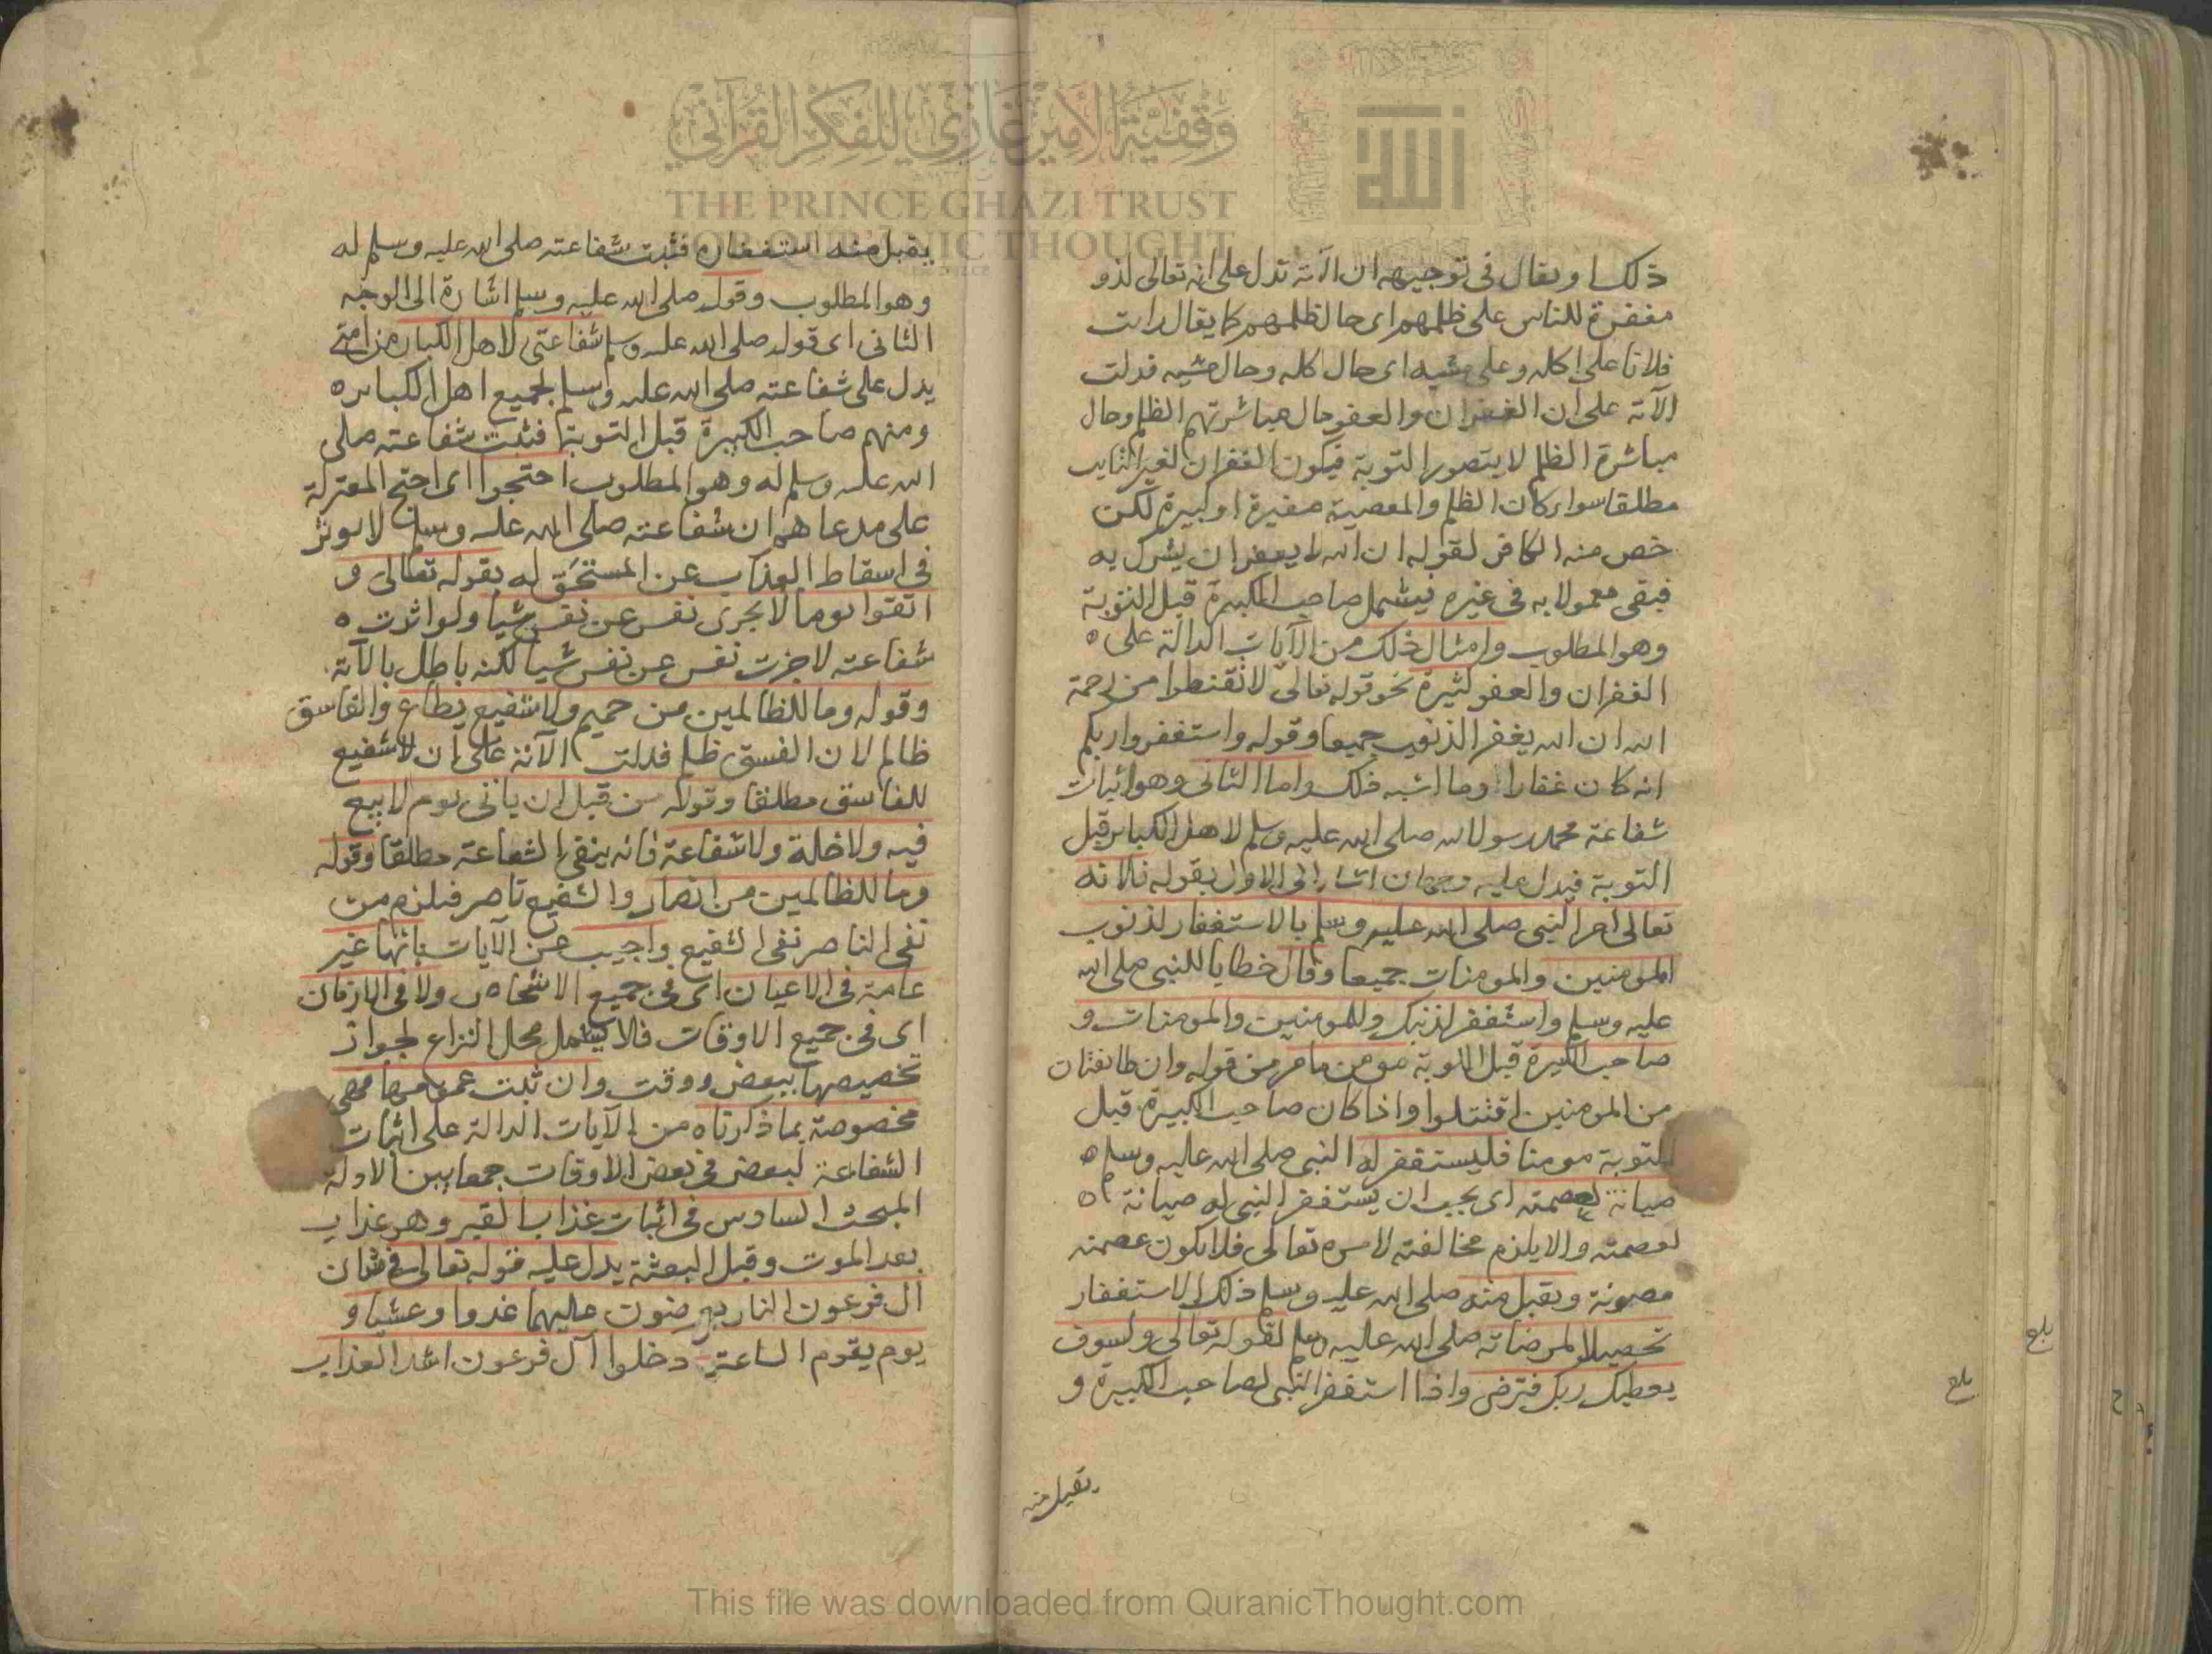 ذلك ويقال في توجيهه ان الآية تدل على انه تعالى لذو
مغفرة للناس على ظلمهم اى حال ظلمهم كما يقال رايت
فلانا على اكله وعلى مشيه اى حال اكله وحال مشيه فدلت
الآية على ان الغفران والعفو حال مباشرتهم الظلم وحال
مباشرة الظلم لا يتصور التوبة فيكون الغفران لغير التايب
مطلقا سواء كان الظلم والمعصية صغيرة او كبيرة لكن
خص منه الكافر لقوله ان الله لا يغفر ان يشرك به
فبقى معمولا به في غيره فيشمل صاحب الكبيرة قبل التوبة
وهو المطلوب وامثال ذلك من الآيات الدالة على ه
الغفران والعفو كثيرة نحو قوله تعالى لا تقنطوا من رحمة
الله ان الله يغفر الذنوب جميعا وقوله واستغفروا ربكم
انه كان غفارا وما اشبه ذلك واما الثانى وهو اثبات
شفاعة محمد رسول الله صلى الله عليه وسلم لاهل الكباير قبل
التوبة فيدل عليه وجهان اشار الى الاول بقوله فلانه
تعالى امر النبى صلى الله عليه وسلم بالاستغفار لذنوب
المومنين والمومنات جميعا وقال خطابا للنبى صلى الله
عليه وسلم واستغفر لذنبك وللمومنين والمومنات و
صاحب الكبيرة قبل التوبة مومن مامر من قوله وان طائفتان
من المومنين اقتتلوا واذا كان صاحب الكبيرة قبل
التوبة مومنا فليستغفر له النبى صلى الله عليه وسلم ه
صيانة لعصمته اى يجب ان يستغفر النبى له صيانة ه
لعصمته والا يلزم مخالفته لامره تعالى فلا يكون عصمته
مصونة ويقبل منه صلى الله عليه وسلم ذلك الاستغفار
تحصيلا لمرضاته صلى الله عليه وسلم لقوله تعالى ولسوف
يعطيك ربك فترضى واذا استغفر النبى لصاحب الكبيرة و
يقبل منه
بلغ
بلغ
يقبل منه استغفاره فثبت شفاعته صلى الله عليه وسلم له
وهو المطلوب وقوله صلى الله عليه وسلم اشارة الى الوجه
الثانى اى قوله صلى الله عليه وسلم شفاعتى لاهل الكبائر من امتى
يدل على شفاعته صلى الله عليه وسلم لجميع اهل الكباير ه
ومنهم صاحب الكبيرة قبل التوبة فثبت شفاعته صلى
الله عليه وسلم له وهو المطلوب احتجوا اى احتج المعتزلة
على مدعاهم ان شفاعته صلى الله عليه وسلم لا يوثر
في اسقاط العذاب عن المستحق له بقوله تعالى و
اتقوا يوما لا يجزى نفس عن نفس شيا ولو اثرت ه
شفاعته لاجزت نفس عن نفس شيا لكنه باطل بالآية
وقوله وما للظالمين من حميم ولا شفيع يطاع والفاسق
ظالم لان الفسق ظلم فدلت الآية على ان لا شفيع
للفاسق مطلقا وقوله من قبل ان ياتى يوم لا بيع
فيه ولا خلة ولا شفاعة فانه ينفى الشفاعة مطلقا وقوله
وما للظالمين من انصار والشفيع ناصر فيلزم من
نفى الناصر نفى الشفيع واجيب عن الآيات بانها غير
عامة في الاعيان اى في جميع الاشخاص ولا في الازمان
اى في جميع الاوقات فلا يشمل محل النزاع لجواز
تخصيصها ببعض ووقت وان ثبت عمومها فهى
مخصوصة بما ذكرناه من الآيات الدالة على اثبات
الشفاعة لبعض في بعض الاوقات جمعا بين الادلة
المبحث السادس في اثبات عذاب القبر وهو عذاب
بعد الموت وقبل البعثة يدل عليه قوله تعالى في شان
آل فرعون النار يعرضون عليها غدوا وعشيا و
يوم يقوم الساعة ادخلوا آل فرعون اشد العذاب
وقفية الأمير غازي للفكر القرآني
THE PRINCE GHAZI TRUST
FOR QUR'ANIC THOUGHT
This file was downloaded from QuranicThought.com